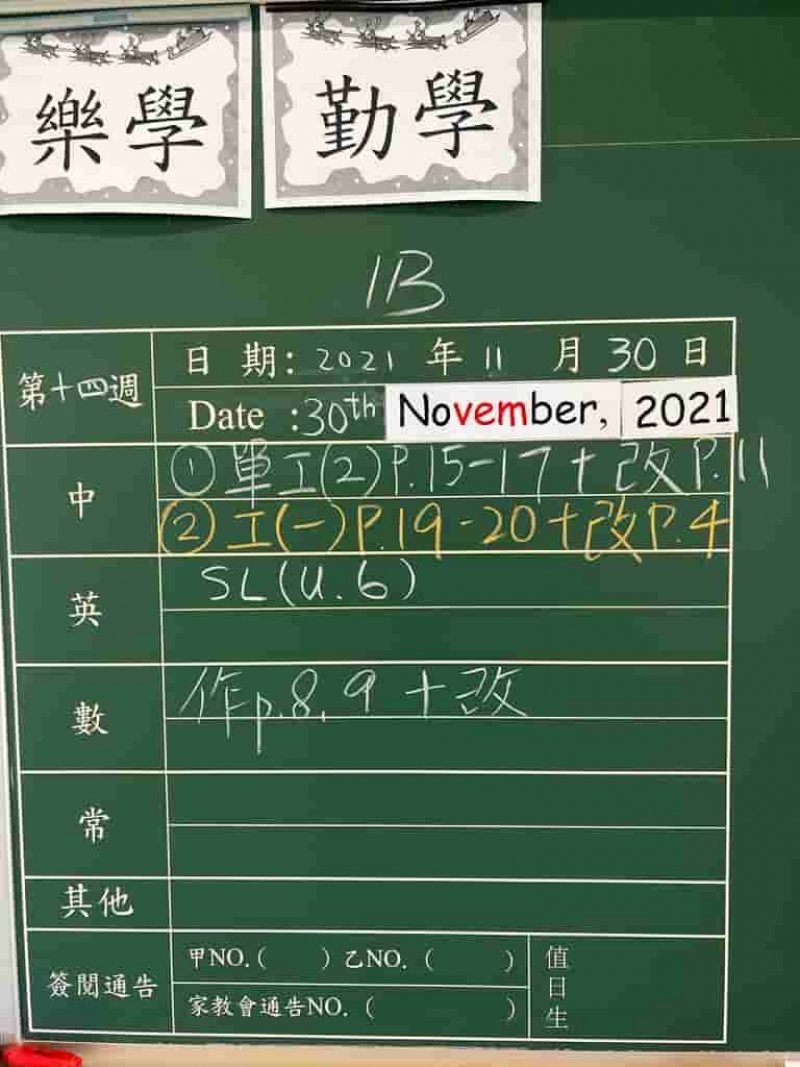 樂學
勤學
1B
第十四週
日 期: 2021 年 11 月 30 日
Date :30th November, 2021
中
①單工(2)P.15-17+改P.11
②工(一)P.19-20+改P.4
英
SL(U.6)
數
作p.8,9 +改
常
其他
簽閱通告
甲NO.( ) 乙NO. ( )
家教會通告NO. ( )
值日生